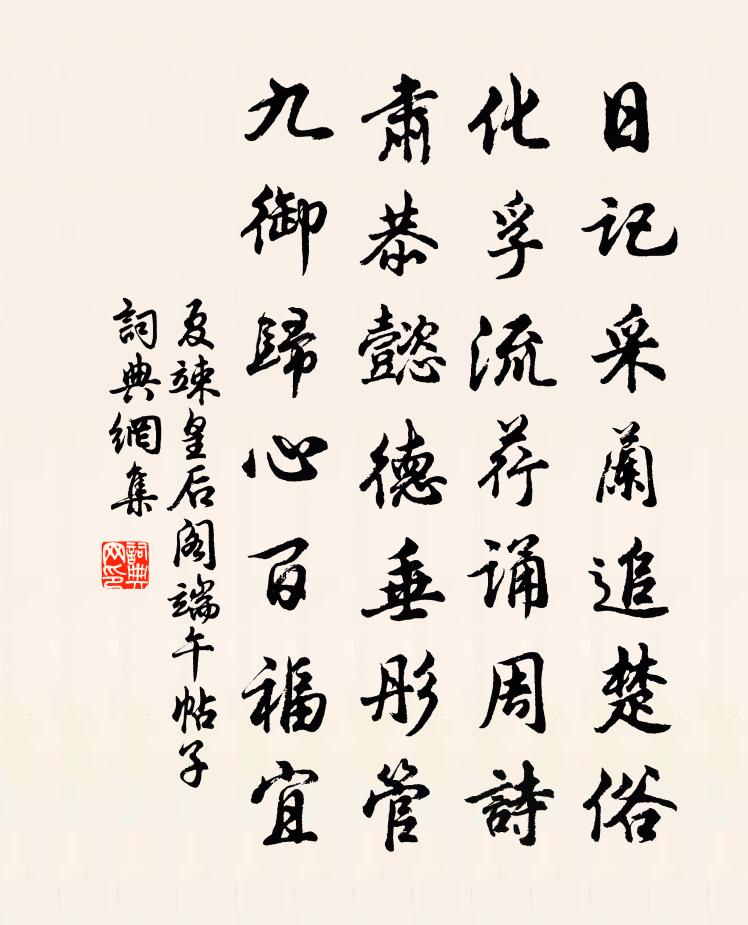 日記采蘭追楚俗
化孚流荇誦周詩
肅恭懿德垂彤管
九御歸心百福宜
夏竦皇后阁端午帖子
詞典網集
詞典网印